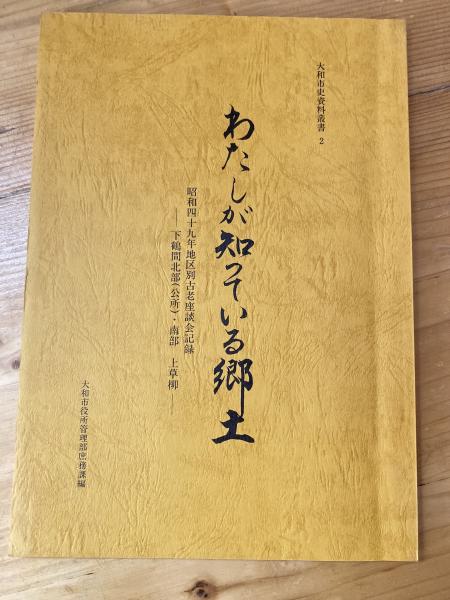 大和市史資料叢書 2
わたしが知っている郷土
昭和四十九年地区別古老座談会記録
――下鶴間北部(公所)・南部 上草柳――
大和市役所管理部庶務課編